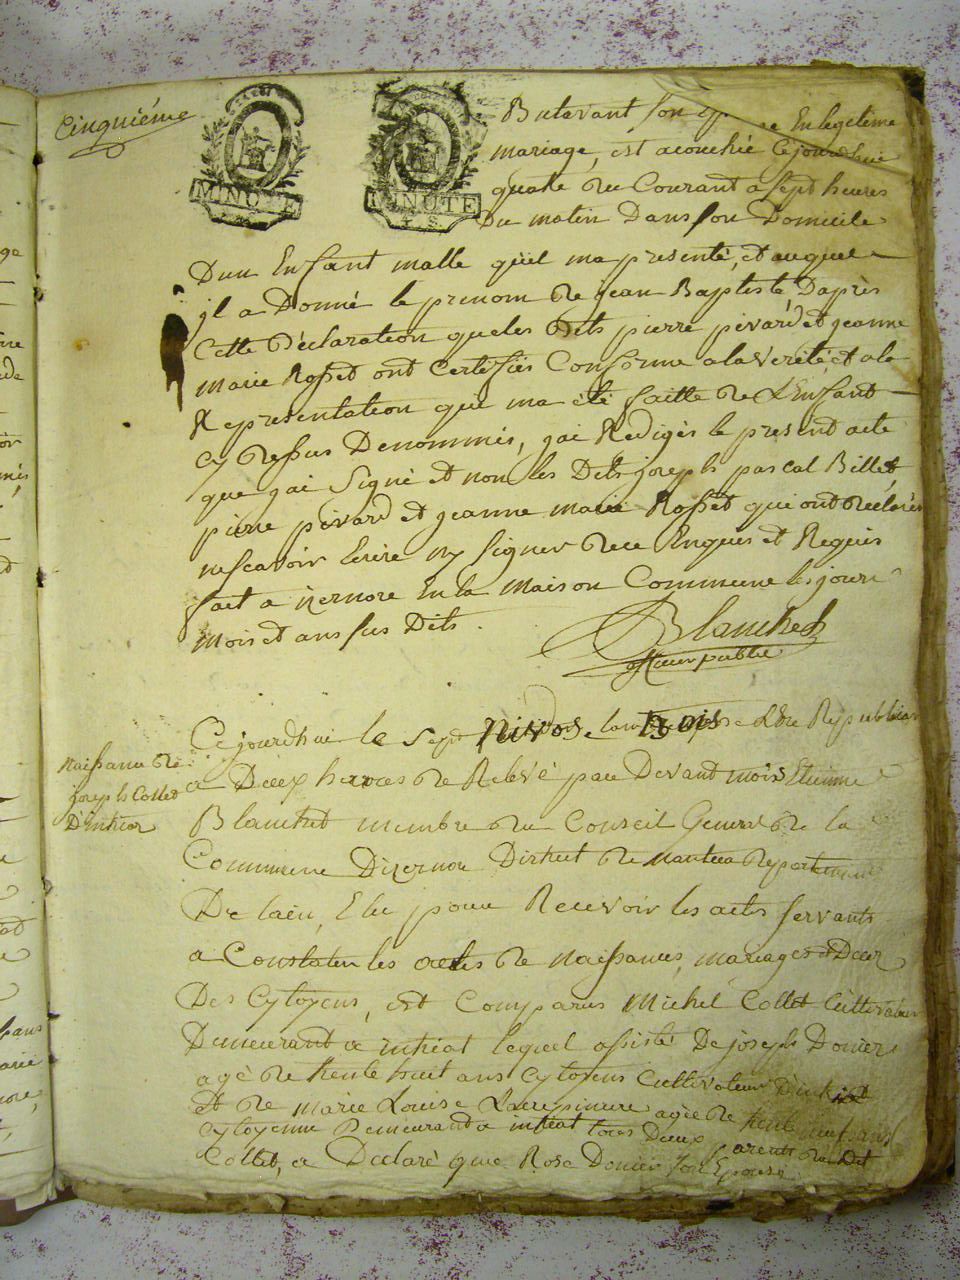 Cinquiéme
MINUTE
MINUTE
4. S.
Butavant son en legitime
mariage, est acouchée Cejourdhui
quatre du Courant a sept heures
Du matin Dans son Domicile
Dun Enfant malle quil ma presenté, et auquel
jl a Donné le prenom de jean Baptiste, Daprès
Cette Déclaration que les Dits pierre pivard et jeanne
marie Rosset ont Certifiés Conforme a la verité, et a la
Representation que ma été faitte de L'Enfant
Cy Dessus Denommés, jai Redigés le present acte
que jai Signé et non les Dits joseph pascal Billet
pierre pivard et jeanne marie Rosset qui ont Déclarés
ne scavoir Ecrire ny signer de ce Enquis et Requis
fait a izernore En la maison Commune les jour
mois et an sus Dits.
Blanchet
officier public
Cejourdhui le sept Nivos lan trois Republicain
a Deux heures de Relevé par Devant mois Etienne
Naissance de
joseph Collet
D'intriat
Blanchet membre du Conseil General de la
Commune Dizernore District de nantua Departement
De lain, Elu pour Recevoir les actes servants
a Constater les actes de naissances, mariages et Deces
Des Cytoyens, est Comparus Michel Collet Cultivateur
Demeurant a intriat lequel assisté De joseph Donier
agé de trente huit ans Cytoyens Cultivateur
et de marie Louise agée de trente neuf ans
Cytoyenne Demeurant a intriat tous Deux parents du Dit
Collet, a Declaré que Rose Donier son Epouse